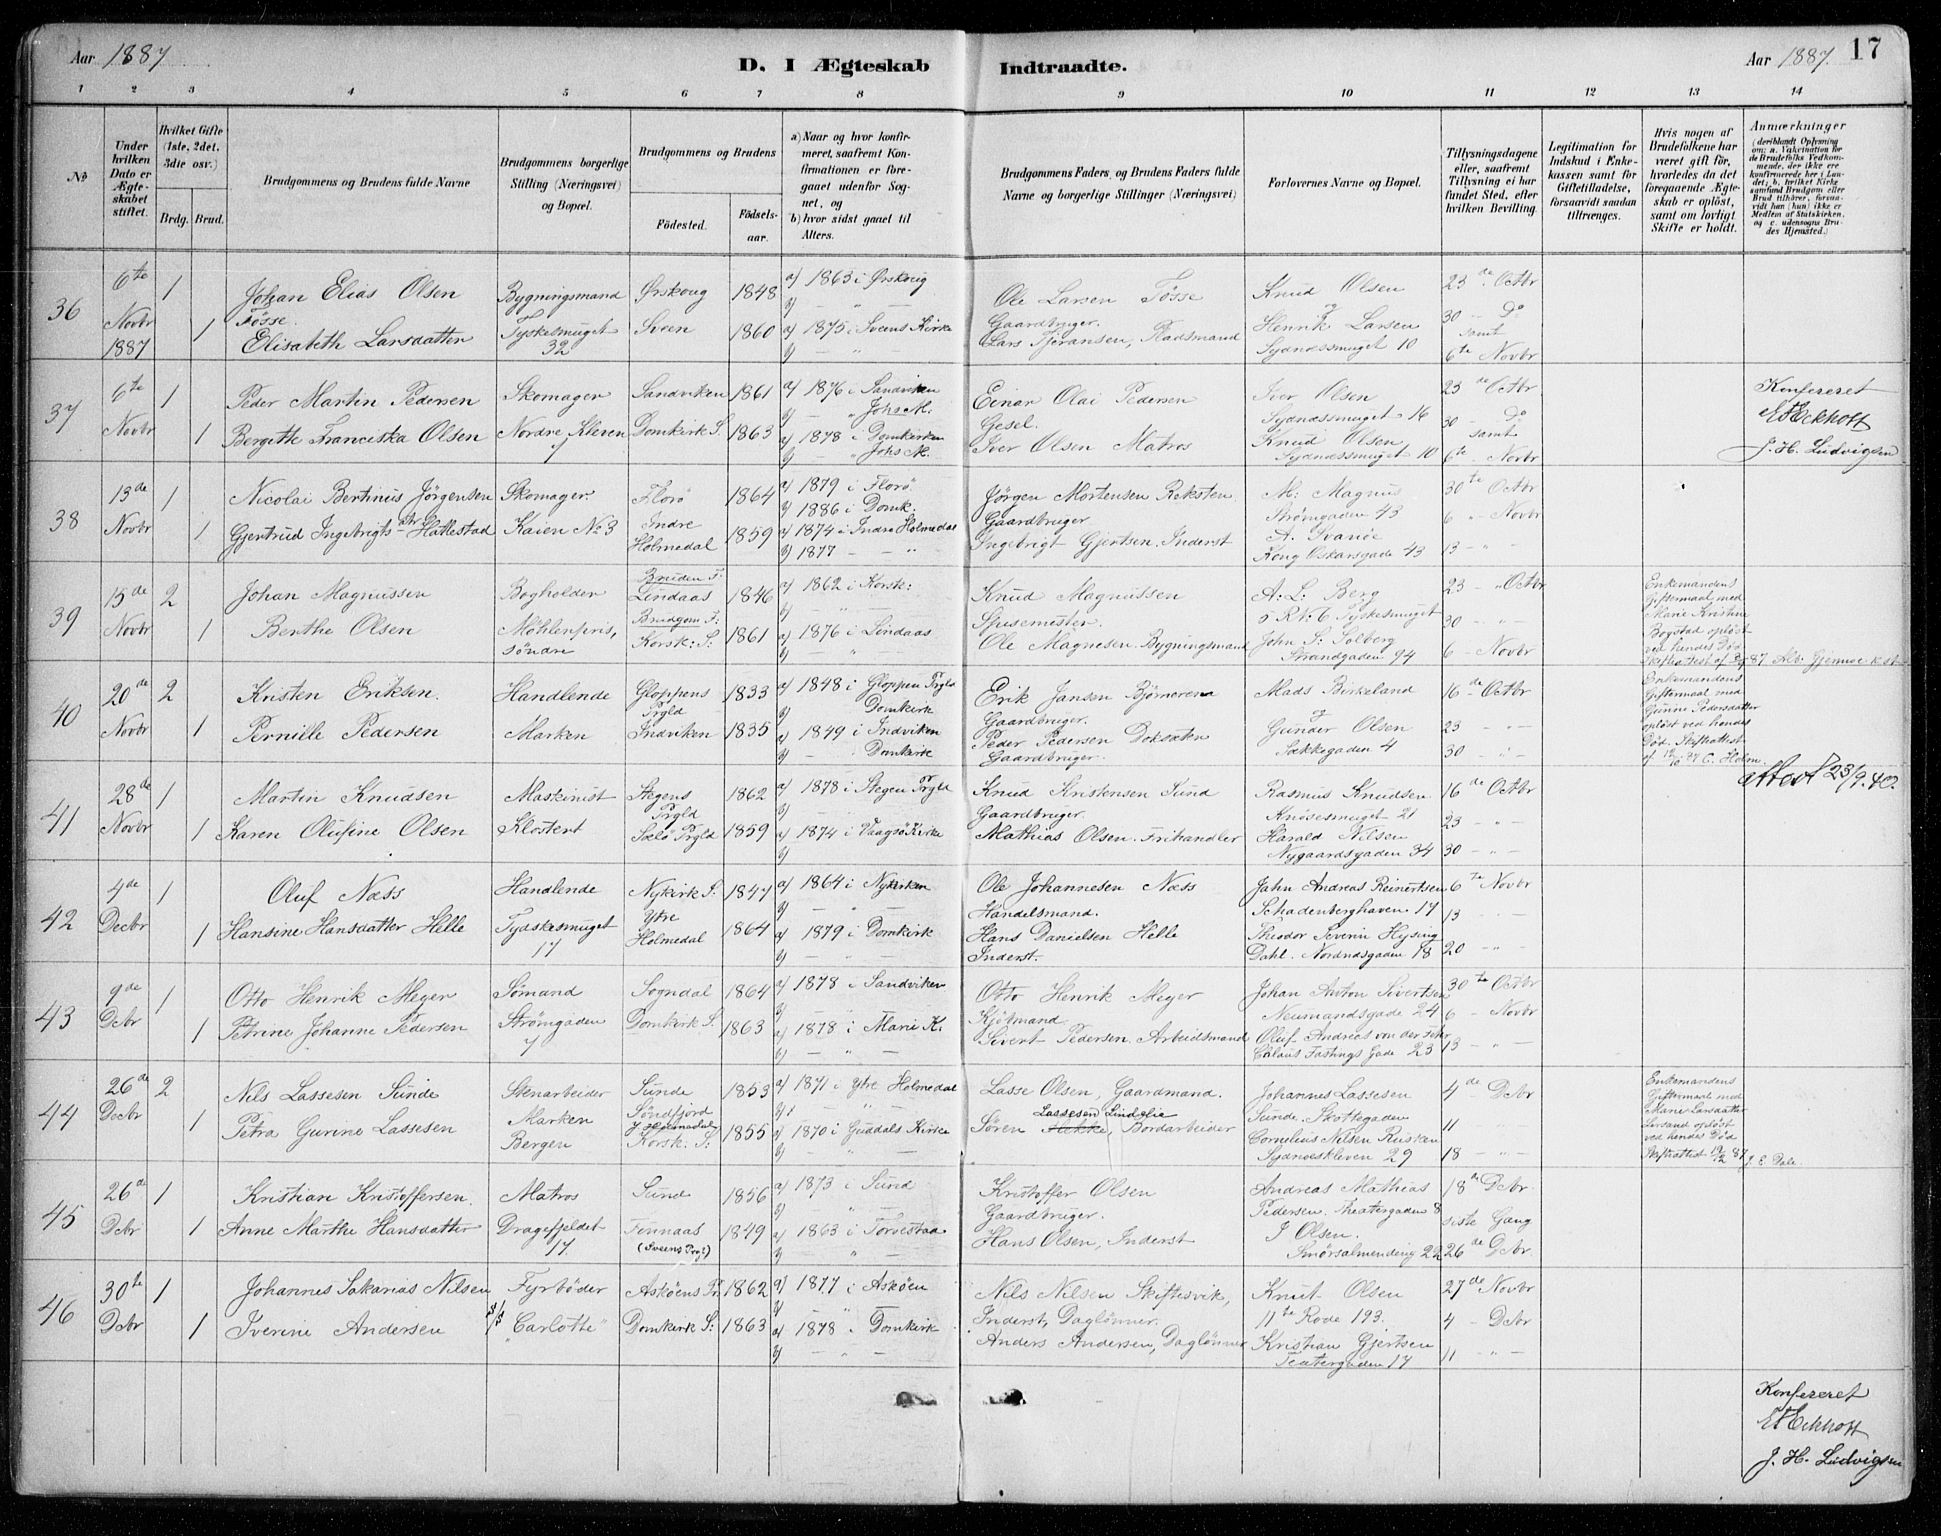 Aar 1887
D. I Ægteskab Indtraadte.
Aar 1887.
17
1 2 3 4 5 6 7 8 9 10 11 12 13 14
No
Under hvilken Dato er Ægteskabet stiftet.
Hvilket Gifte (1ste, 2det, 3die osv.)
Brdg. Brud.
Brudgommens og Brudens fulde Navne
Brudgommens borgerlige Stilling (Næringsvei) og Bopæl.
Brudgommens og Brudens
Födested.
Födselsaar.
a) Naar og hvor konfirmeret, saafremt Konfirmationen er foregaaet udenfor Sognet, og
b) hvor sidst gaaet til Alters.
Brudgommens Faders og Brudens Faders fulde Navne og borgerlige Stillinger (Næringsvei)
Forlovernes Navne og Bopæl.
Tillysningsdagene eller, saafremt Tillysning ei har fundet Sted, efter hvilken Bevilling.
Legitimation for Indskud i Enkekassen samt for Giftetilladelse, forsaavidt saadan tiltrænges.
Hvis nogen af Brudefolkene har været gift för, hvorledes da det foregaaende Ægteskab er oplöst, samt om lovligt Skifte er holdt.
Anmærkninger (deriblandt Oplysning om: a. Vakcination for de Brudefolks Vedkommende, der ikke ere konfirmerede her i Landet; b. hvilket Kirkesamfund Brudgom eller Brud tilhörer, forsaavidt han (hun) ikke er Medlem af Statskirken, og c. udensogns Brudes Hjemsted.)
36
6te Novbr 1887
1
Johan Elias Olsen Tösse.
Bygningsmand
Ørskoug 1848
a) 1863 i Ørskoug
b) — " —
Ole Larsen Tösse Gaardbruger.
Knud Olsen
23de Octbr
1
Elisabeth Larsdatter
Tyskesmuget 32
Sveen 1860
a) 1875 i Sveens Kirke
b) — "
Lars Tjeransen, Pladsmand
og Henrik Larsen
Sydnæssmuget 10
30 — Do
samt
6te Novbr
37
6te Novbr
1
Peder Martin Pedersen
Skomager
Sandviken 1861
a) 1876 i Sandviken
b) — " Johs K.
Einar Olai Pedersen Gesel.
Iver Olsen
Sydnæssmuget 16
23de Octbr
1
Bergitte Franciska Olsen
Nordre Kleven 7
Domkirk S. 1863
a) 1878 i Domkirken
b) " Johs K.
Iver Olsen Matros
Knud Olsen
Sydnæssmuget 10
30 — Do
samt
6te Novbr
Konfereret
J. H. Ludvigsen
38
13de Novbr
1
Nicolai Bertinus Jörgensen
Skomager
Florö 1864
a) 1879 i Florö
b) 1886 i Domk:
Jörgen Mortensen Reksten Gaardbruger
M: Magnus
Strömgaden 43
30te Octbr
1
Gjertrud Ingebrigtsdtr Hattestad
Kaien No 3
Indre Holmedal 1859
a) 1874 i Indre Holmedal
b) 1877 — — "
Ingebrigt Gjertsen Inderst
A. Svanöe
Kong Oskarsgade 43
6 " Novbr
13 — " —
39
15de Novbr
2
Johan Magnussen
Bogholder
Bruden F: Lindaas 1846
a) 1862 i Korsk:
b)
Knud Magnussen Spisemester.
A. L. Berg
5 R. No 6 Tyskesmuget
23 — " Octbr
1
Berthe Olsen
Möhlenpris, söndre
Brudgom F: Korsk: S: 1861
a) 1876 i Lindaas
b)
Ole Magnesen Bygningsmand
John S: Solberg
Strandgaden 94
30 — " —
6 — Novbr
Enkemandens Giftermaal med Marie Kristine Bogstad oplöst ved hendes Död
40
20de Novbr
2
Kristen Eriksen.
Handlende
Gloppens Prgld 1833
a) 1848 i Gloppen Prgld
b) Domkirk
Erik Jansen Gaardbruger.
Mads Birkeland
16de Octbr
1
Pernille Pedersen
Marken
Indviken 1835
a) 1849 i Indviken
b) — Domkirk
Peder Pedersen Gaardbruger.
og Gunder Olsen
Sækkegaden 4
23 — " —
30 — " —
Enkemandens Giftermaal med Gunne Pedersdatter oplöst ved hendes Död. Skifteattest
C. Holm.
41
28de Novbr
1
Martin Knudsen
Maskinist
Stegens Prgld 1862
a) 1878 i Stegen Prgld
b)
Knud Kristensen Sund Gaardbruger.
Rasmus Knudsen
Knösesmuget 21
16de Octbr
1
Karen Olufine Olsen
Klostert
Sælö Prgld 1859
a) 1874 i Vaagsö Kirke
b)
Mathias Olsen. Frihandler
Harald Nilsen
Nygaardsgaden 34
23 — " —
30 — " —
Attest 23/9. 40.
42
4de Decbr
1
Oluf Næss
Handlende
Nykirk S: 1847
a) 1864 i Nykirken
b) — " —
Ole Johannesen Næss Handelsmand.
Jahn Andreas Reinertsen
Schadenberghaven 17
6te Novbr
1
Hansine Hansdatter Helle
Tydskesmuget 17
Ytre Holmedal 1864
a) 1879 i Domkirk
b)
Hans Danielsen Helle Inderst.
Theodor Severin Heysing
Dahl. Nordnæsgaden 18
13 — " —
20 — " —
43
9de Dcbr
1
Otto Henrik Meyer
Sömand
Sogndal 1864
a) 1878 i Sandviken
b) — " —
Otto Henrik Meyer Kjötmand
Johan Anton Sivertsen
Neumandsgade 24
30te Octbr
1
Petrine Johanne Pedersen
Strömgaden 7
Domkirk S. 1863
a) 1878 i Marie K.
b) — " —
Sivert Pedersen. Arbeidsmand
Oluf Andreas von der
Claus Fastings Gade 23
6 — Novbr
13 — " —
44
26de Decbr
2
Nils Lassesen Sunde
Stenarbeider
Sunde Söndfjord Y Holmedal 1853
a) 1871 i Ytre Holmedal
b) " —
Lasse Olsen, Gaardmand.
Johannes Lassesen
Sunde. Skottegaden
4de Dcbr
1
Petra Gurine Lassesen
Marken Bergen
Korsk: S: 1855
a) 1870 i Guddals Kirke
b) — " —
Sören Lassesen Lindelie, Bordarbeider
Cornelius Nilsen
Sydneskleven 29
11 " —
18 — " —
Enkemandens Giftermaal med Marie Larsdatter oplöst ved hendes Död Skifteattest
J. E. Dale.
45
26de Dcbr
1
Kristian Kristoffersen.
Matros
Sund 1856
a) 1873 i Sund
b) — " —
Kristoffer Olsen Gaardbruger.
Andreas Mathias
Pedersen. Theatergaden 8
18de Dcbr.
1
Anne Marthe Hansdatter
Dragefjeldet 17
Finnaas (Sveens Prgl) 1849
a) 1863 i Torvestad
b) — " —
Hans Olsen, Inderst
J Olsen.
Smörsalmending 22
siste Gang
26de Dcbr
46
30te Dcbr
1
Johannes Sakarias Nilsen
Fyrböder
Asköens Pr. 1862
a) 1877 i Asköen
b) — " —
Nils Nilsen Skiftesvik, Inderst, Daglönner.
Knut Olsen
11te Rode 193.
27de Novbr
1
Iverine Andersen
S/S "Carlotte"
Domkirk S: 1863
a) 1878 i Domkirk
b) — " —
Anders Andersen, Daglönner
Kristian Gjertsen
Teatergaden 17
4 — Dcbr
11 — " —
Konfereret
J. H. Ludvigsen